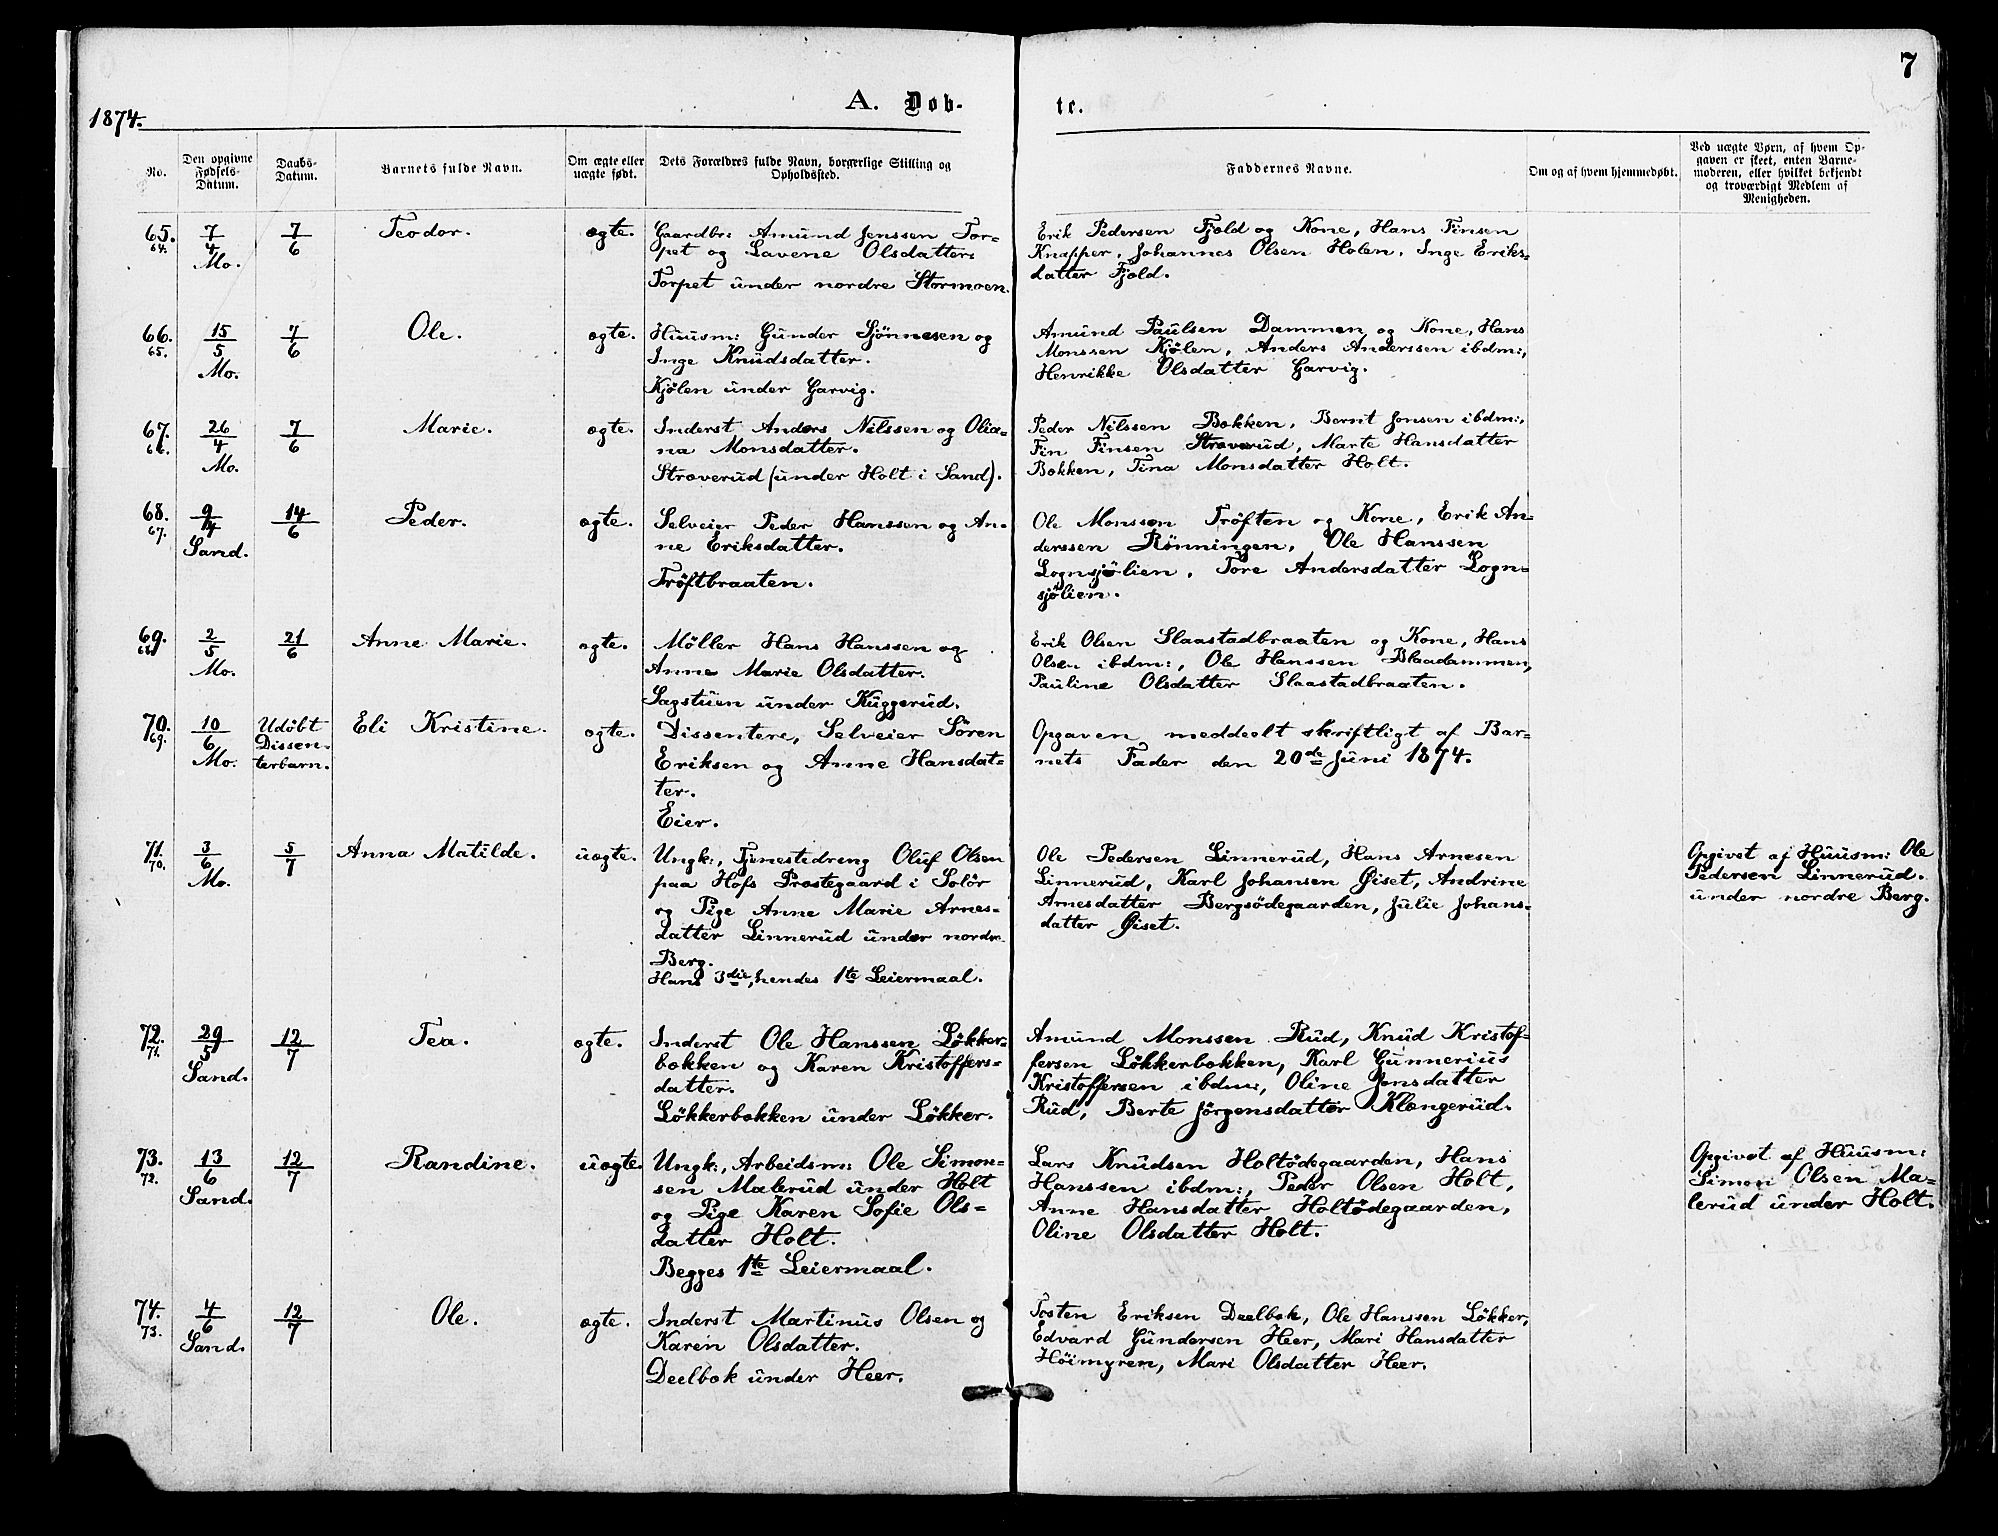 7
1874.
A. Døb-
te.
No.
Den opgivne
Fødsels-
Datum.
Daabs-
Datum.
Barnets fulde Navn.
Om ægte eller
uægte født.
Dets Forældres fulde Navn, borgerlige Stilling og
Opholdssted.
Faddernes Navne.
Om og af hvem hjemmedøbt.
Ved uægte Børn, af hvem Op-
gaven er skeet, enten Barne-
moderen, eller hvilket bekjendt
og troværdigt Medlem af
Menigheden.
65.
64.
7/4
Mo.
7/6
Teodor.
ægte.
Gaardbr: Amund Jenssen Tor-
pet og Lavene Olsdatter.
Torpet under nordre Stormoen.
Erik Pedersen Fjeld og Kone, Hans Finsen
Knapper, Johannes Olsen Holen, Inge Eriks-
datter Fjeld.
66.
65.
15/5
Mo.
7/6
Ole.
ægte.
Huusm: Gunder Sjønnesen og
Inge Knudsdatter.
Kjølen under Garvig.
Amund Paulsen Dammen og Kone, Hans
Monssen Kjølen, Anders Anderssen ibdm:,
Henrikke Olsdatter Garvig.
67.
66.
26/4
Mo.
7/6
Marie.
ægte.
Inderst Anders Nilssen og Olia-
na Monsdatter.
Stræverud (under Holt i Sand).
Peder Nilssen Bækken, Bernt Jonsen ibdm:,
Fin Finsen Stræverud, Marte Hansdatter
Bækken, Tina Monsdatter Holt.
68.
67.
9/4
Sand.
14/6
Peder.
ægte.
Selveier Peder Hanssen og An-
ne Eriksdatter.
Trøftbraaten.
Ole Monssen Trøften og Kone, Erik An-
derssen Rønningen, Ole Hanssen
Lognsjølien, Tore Andersdatter Logn-
sjølien.
69.
68.
2/5
Mo.
21/6
Anne Marie.
ægte.
Møller Hans Hanssen og
Anne Marie Olsdatter.
Sagstuen under Kuggerud.
Erik Olsen Slaastadbraaten og Kone, Hans
Olsen ibdm:, Ole Hanssen Blaadammen,
Pauline Olsdatter Slaastadbraaten.
70.
69.
10/6
Mo.
Udøbt
Dissen-
terbarn.
Eli Kristine.
ægte.
Dissentere, Selveier Søren
Eriksen og Anne Hansdat-
ter.
Eier.
Opgaven meddeelt skriftligt af Bar-
nets Fader den 20de Juni 1874.
71.
70.
3/6
Mo.
5/7
Anna Matilde.
uægte.
Ungk:, Tjenestedreng Oluf Olsen
paa Hofs Prestegaard i Solør
og Pige Anne Marie Arnes-
datter Linnerud under nordre
Berg.
Hans 3die, hendes 1te Leiermaal.
Ole Pedersen Linnerud, Hans Arnesen
Linnerud, Karl Johansen Øiset, Andrine
Arnesdatter Bergsødegaarden, Julie Johans-
datter Øiset.
Opgivet af Huusm: Ole
Pedersen Linnerud.
under nordre Berg.
72.
71.
29/5
Sand.
12/7
Tea.
ægte.
Inderst Ole Hanssen Løkker-
bækken og Karen Kristoffers-
datter.
Løkkerbækken under Løkker.
Amund Monssen Rud, Knud Kristof-
fersen Løkkerbækken, Karl Gunnerius
Kristoffersen ibdm:, Oline Jonsdatter
Rud, Berte Jørgensdatter Klængerud.
73.
72.
13/6
Sand.
12/7
Randine.
uægte.
Ungk:, Arbeidsm: Ole Simon-
sen Malerud under Holt
og Pige Karen Sofie Ols-
datter Holt.
Begges 1te Leiermaal.
Lars Knudsen Holtødegaarden, Hans
Hanssen ibdm:, Peder Olsen Holt,
Anne Hansdatter Holtødegaarden,
Oline Olsdatter Holt.
Opgivet af Huusm:
Simon Olsen Ma-
lerud under Holt.
74.
73.
4/6
Sand.
12/7
Ole.
ægte.
Inderst Martinus Olsen og
Karen Olsdatter.
Deelbæk under Heer.
Tosten Eriksen Deelbæk, Ole Hanssen Løkker,
Edvard Gundersen Heer, Mari Hansdatter
Høimyren, Mari Olsdatter Heer.